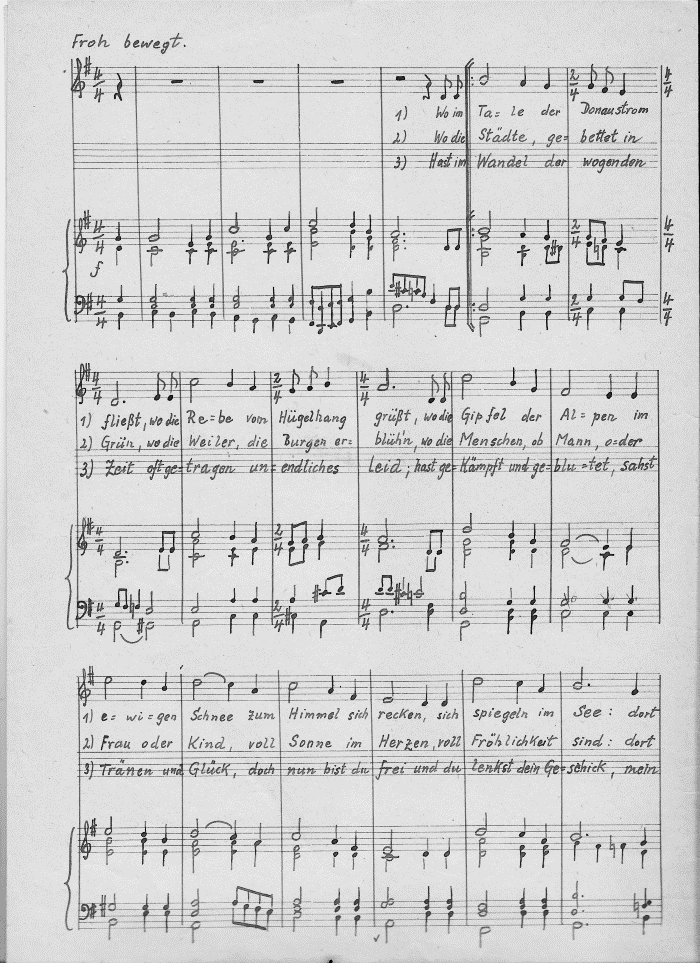 Froh bewegt.
1) Wo im Ta= le der Donaustrom
2) Wo die Städte, ge= bettet in
3) Hast im Wandel der wogenden
f
1) fließt, wo die Re=be vom Hügelhang grüßt, wo die Gipfel der Al=pen im
2) Grün, wo die Weiler, die Burgen er= blüh'n, wo die Menschen, ob Mann, o=der
3) Zeit oft ge=tragen un=endliches Leid; hast ge=kämpft und ge=blu=tet, sahst
1) e= wi=gen Schnee zum Himmel sich recken, sich spiegeln im See: dort
2) Frau oder Kind, voll Sonne im Herzen, voll Fröhlichkeit sind: dort
3) Tränen und Glück, doch nun bist du frei und du lenkst dein Ge=schick, mein